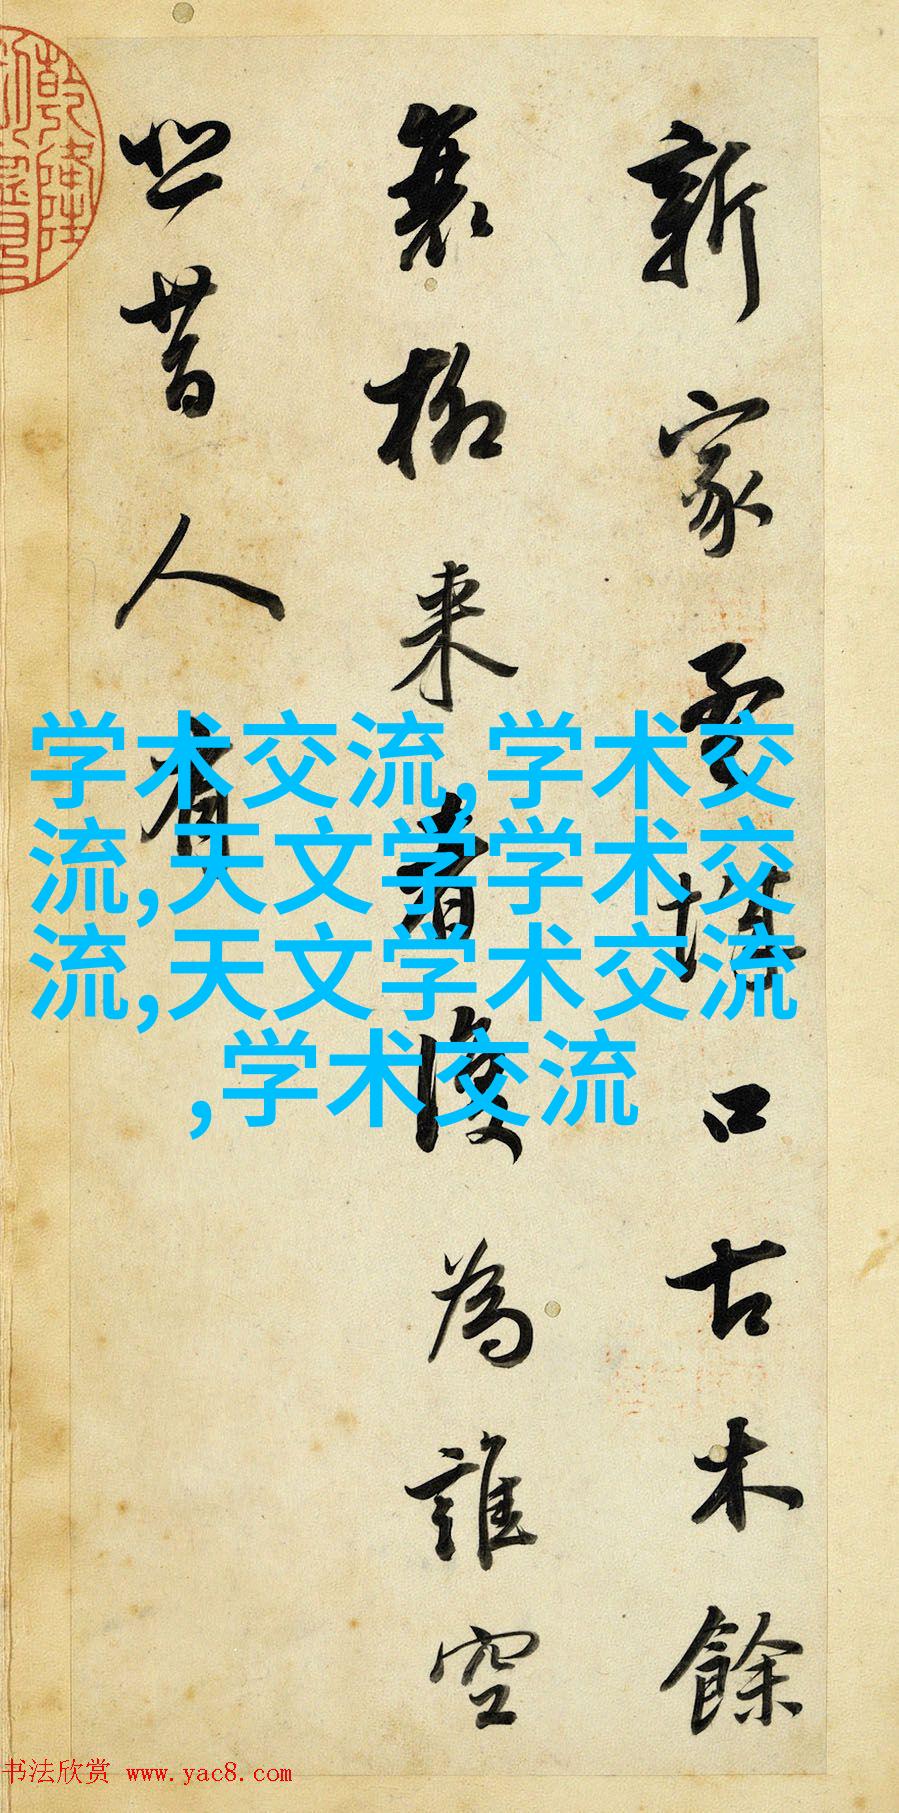 新家孟城口古木餘
衰柳来者復為誰空
悲昔人有
乾隆
学术交流,学术交
流,天文学学术交
流,天文学术交流
,学术交流
书法欣赏 www.yac8.com